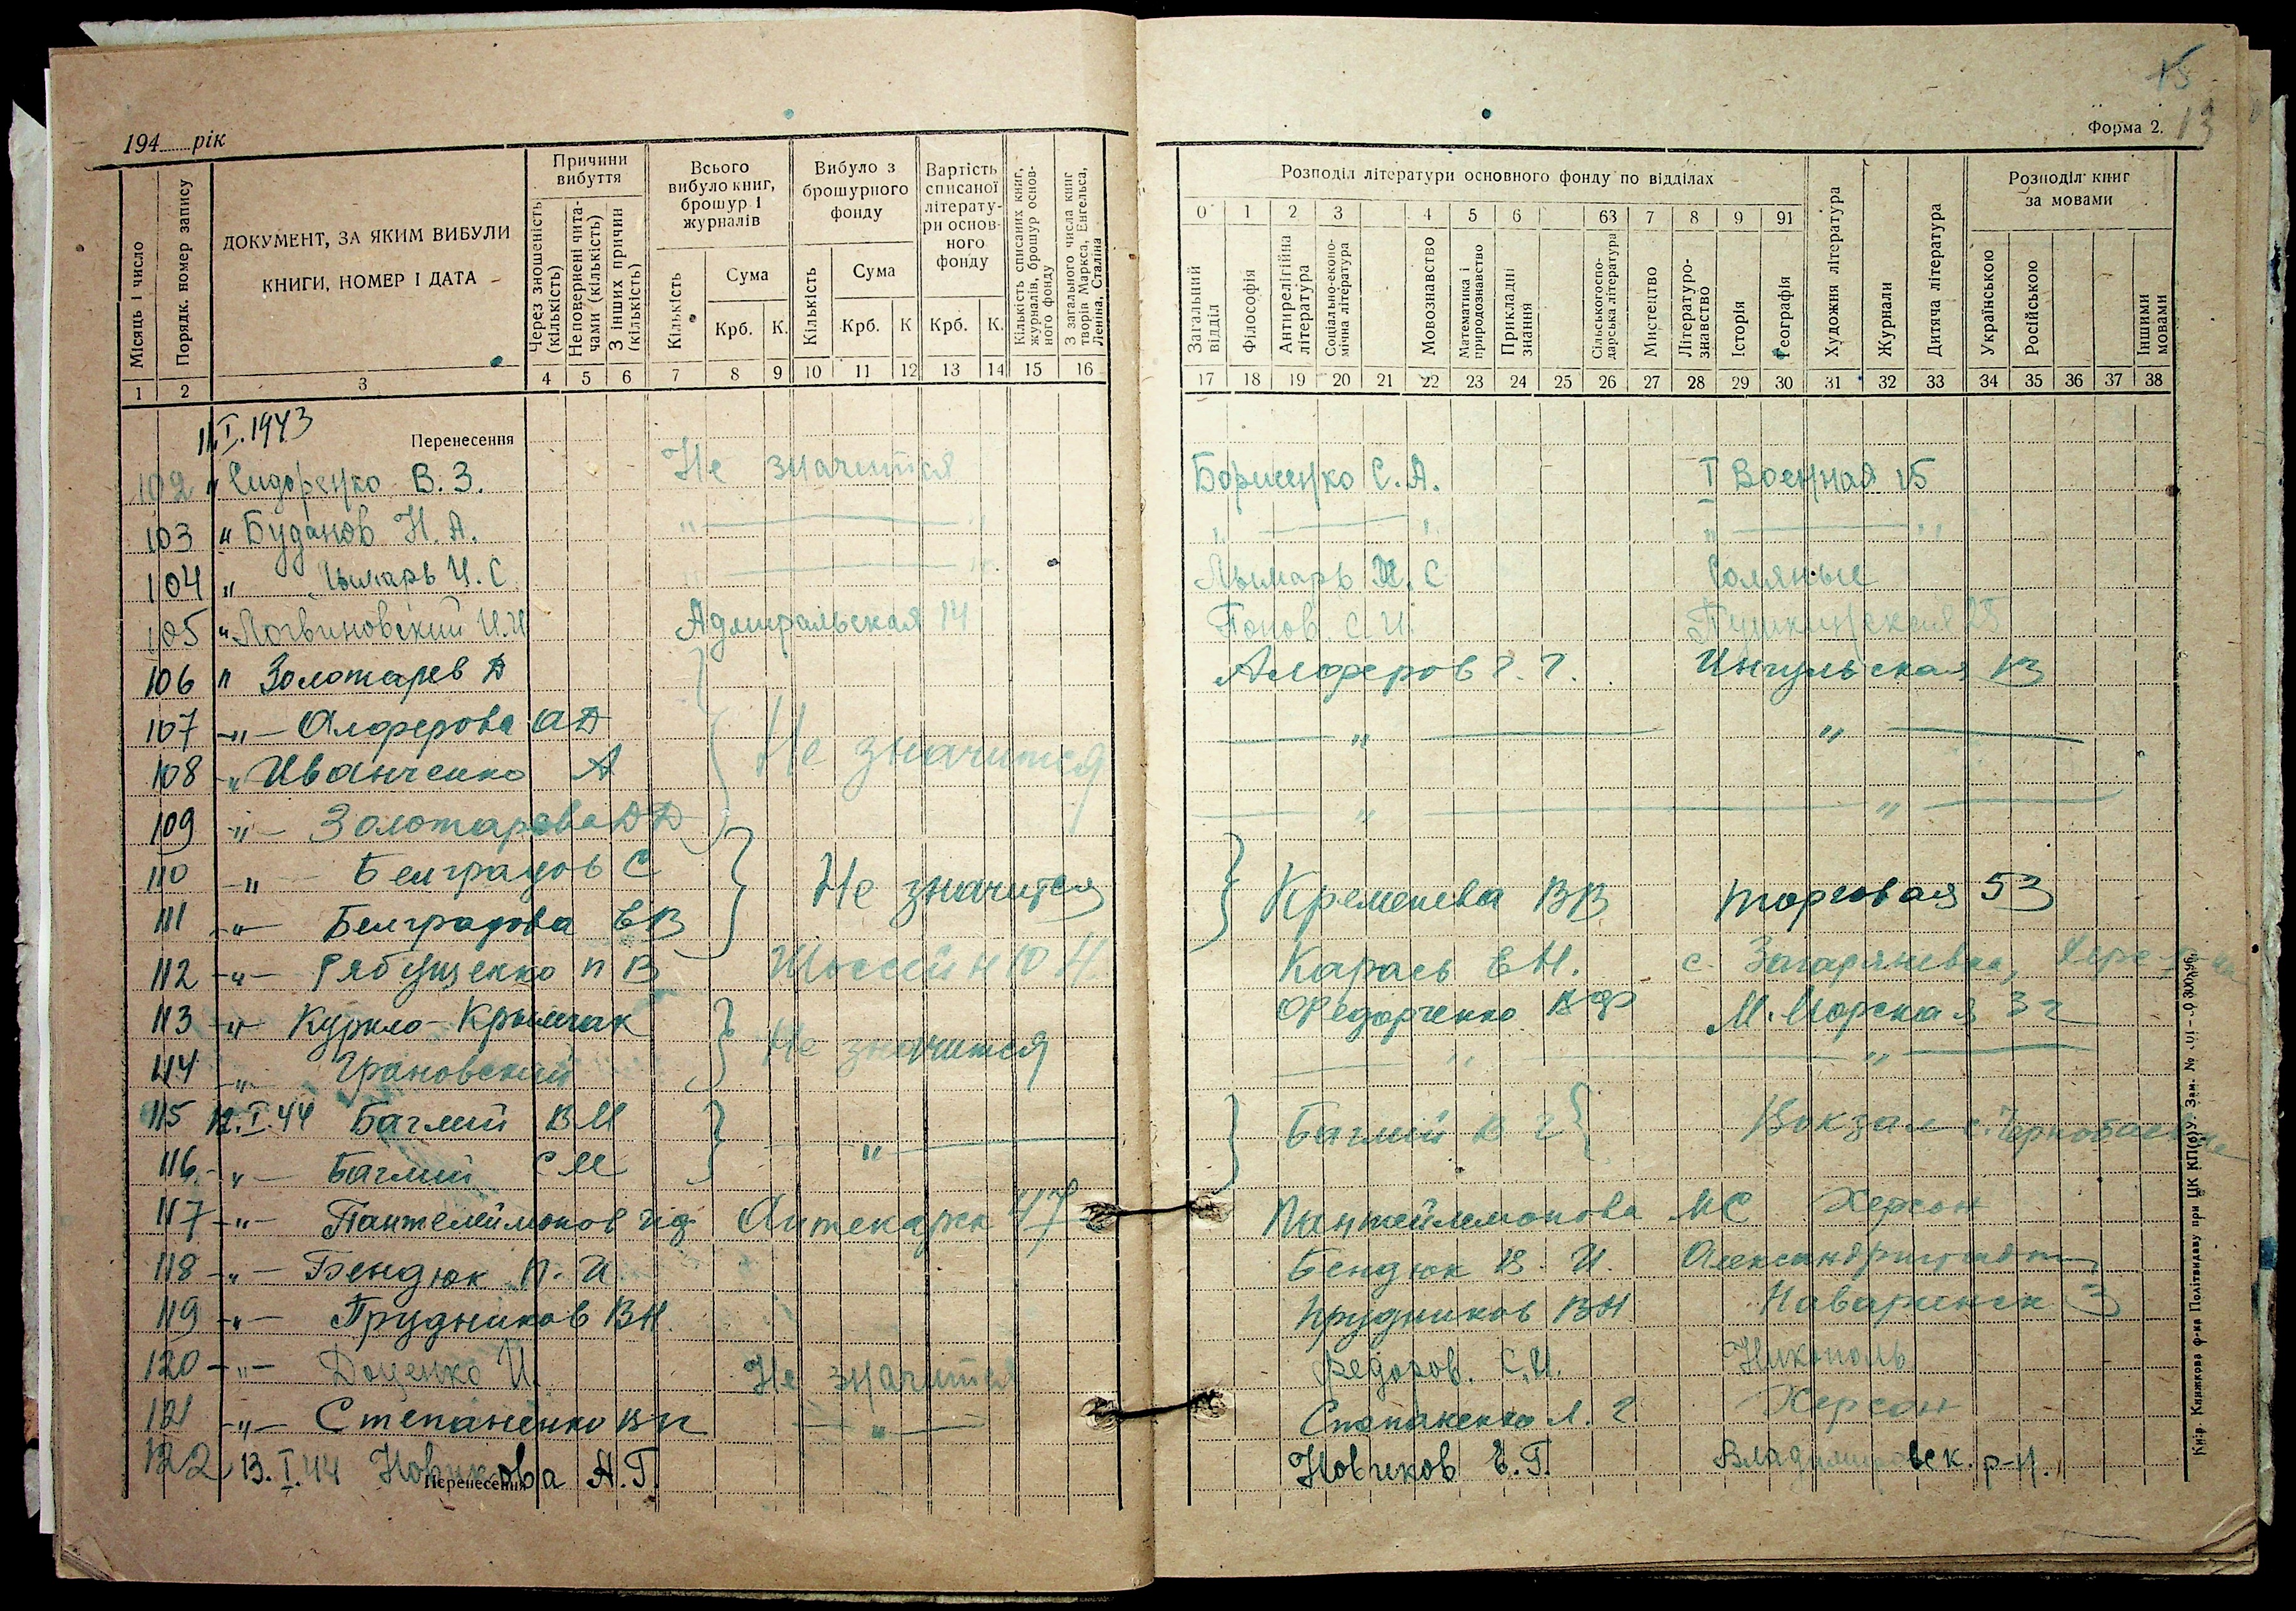 15
13
194 рік
Форма 2.
Місяць і число
Порядк. номер запису
ДОКУМЕНТ, ЗА ЯКИМ ВИБУЛИ
КНИГИ, НОМЕР І ДАТА
Причини
вибуття
Через зношеність
(кількість)
Неповернені чита-
чами (кількість)
З інших причин
(кількість)
Всього
вибуло книг,
брошур і
журналів
Кількість
Сума
Крб. К.
Вибуло з
брошурного
фонду
Кількість
Сума
Крб. К
Вартість
списаної
літерату-
ри основ-
ного
фонду
Крб. К.
Кількість списаних книг,
журналів, брошур основ-
ного фонду
З загального числа книг
творів Маркса, Енгельса,
Леніна, Сталіна
1 2 3 4 5 6 7 8 9 10 11 12 13 14 15 16
Розподіл літератури основного фонду по відділах
0 1 2 3 4 5 6 63 7 8 9 91
Загальний
відділ
Філософія
Антирелігійна
література
Соціально-еконо-
мічна література
Мовознавство
Математика і
природознавство
Прикладні
знання
Сільськогоспо-
дарська література
Мистецтво
Літературо-
знавство
Історія
Географія
Художня література
Журнали
Дитяча література
Розподіл книг
за мовами
Українською
Російською
Іншими
мовами
17 18 19 20 21 22 23 24 25 26 27 28 29 30 31 32 33 34 35 36 37 38
11.I.1943
Перенесення
102 " Сидоренко В.З. Не значится Борисенко С.А. I Военная 15
103 " Буданов Н.А. " " " " " "
104 " Лымарь И.С. " " Лымарь И.С Соляные
105 " Логвиновский И.И Адмиральская 14 Попов С.И. Пушкинская 25
106 " Золотарев Д Алферов Г.Г. Ингульская 13
107 -"- Алферова АД Не значится " "
108 " Иванченко А
109 -"- Золотарева ДД " "
110 -"- Белградов С Не значится Кременева ВВ Торговая 53
111 -"- Белградова ЕВ
112 -"- Рябущенко П В Карась ЕН. с.
113 -"- Курило-Крымчак Не значится Федорченко М. Морская 32
114 -"- Грановский " "
115 12.I.44 Баглий ВМ " Баглий В Г Вокзал с.
116 -"- Баглий СМ
117 -"- Пантелеймонов Аптекарск 47 Пантейлемонова МС Херсон
118 -"- Бендюк П.И Бендюк В.И.
119 -"- Прудников ВН. Прудников ВН. Наваринск 3
120 -"- Доценко И. Не значится Федоров С.И. Никополь
121 -"- Степаненко ВП " Степаненко Л.Г Херсон
122 13.I.44 Новикова А.Г. Новиков Е.Г. Владимировск. р-н.
Перенесення